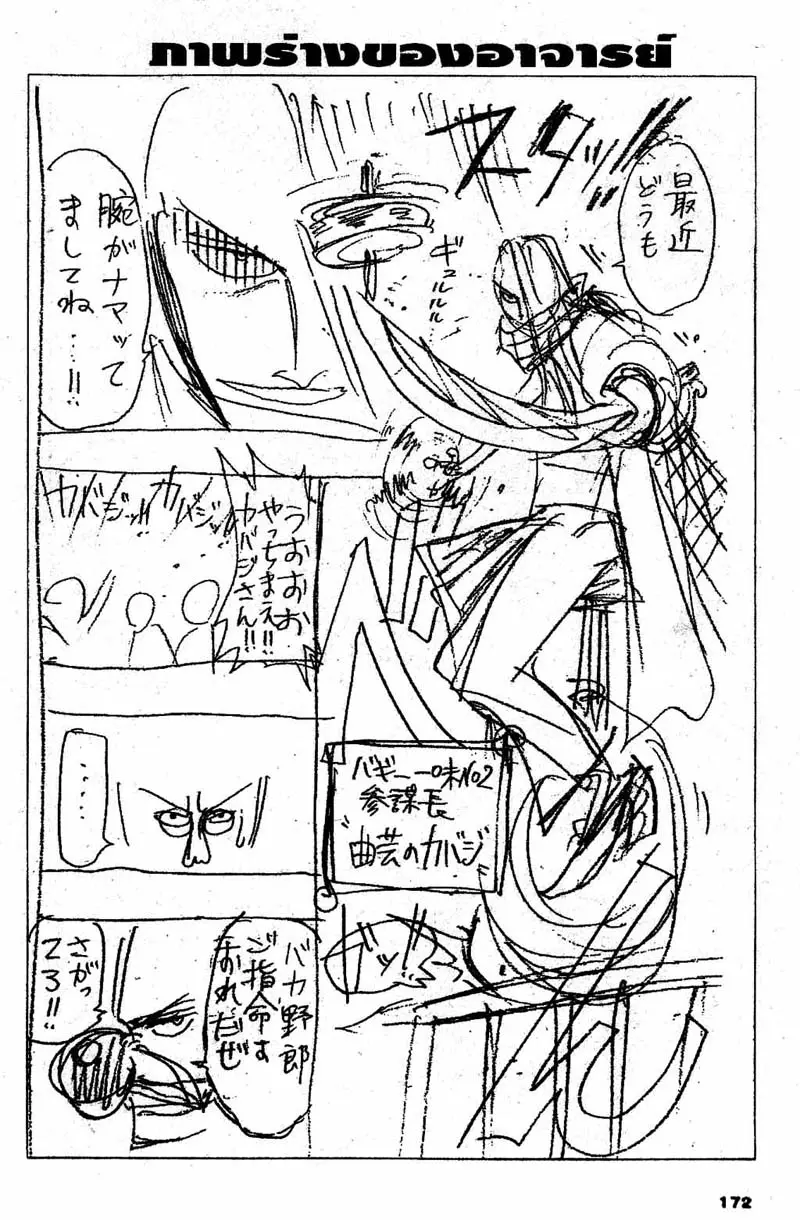 ภาพร่างของอาจารย์
スタッ!!
最近
どうも
ギュルルル
腕がナマッて
ましてね…!!
うおおおお
やっちまえ!!
カバジさん!!
カバジッ!!
カバジッ!!
......
バギー一味No2
参謀長
"曲芸のカバジ"
バカ野郎
ご指命は
おれだぜ
さがっ
てろ!!
172